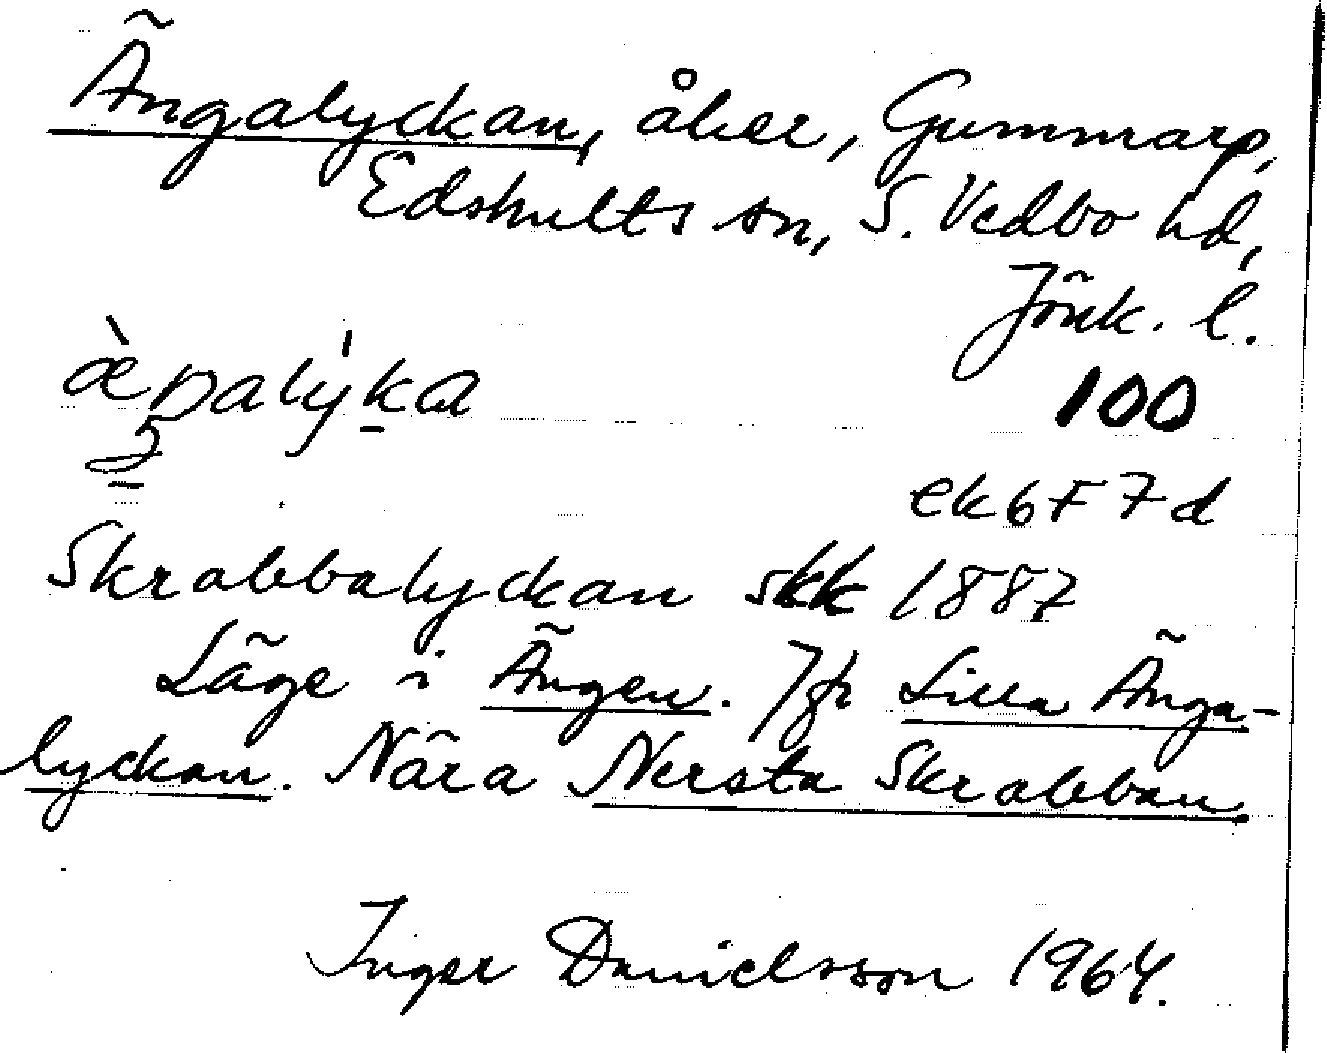 Ängalyckan, åker, Gummarp,
Edshults sn, S. Vedbo hd,
Jönk. l.
100
ek 6 F 7 d
Skrabbalyckan skk 1887
Läge i Ängen. Jfr Lilla Änga-
lyckan. Nära Nersta Skrabban.
Inger Danielsson 1964.